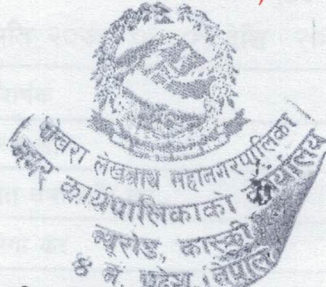 पोखरा लेखनाथ महानगरपालिका
नगर कार्यपालिकाको कार्यालय
न्यूरोड, कास्की
४ नं. प्रदेश, नेपाल